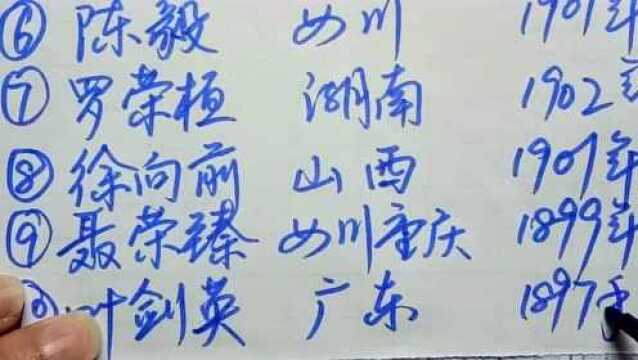 ⑥ 陈毅 四川 1901年
⑦ 罗荣桓 湖南 1902年
⑧ 徐向前 山西 1901年
⑨ 聂荣臻 四川重庆 1899年
⑩ 叶剑英 广东 1897年